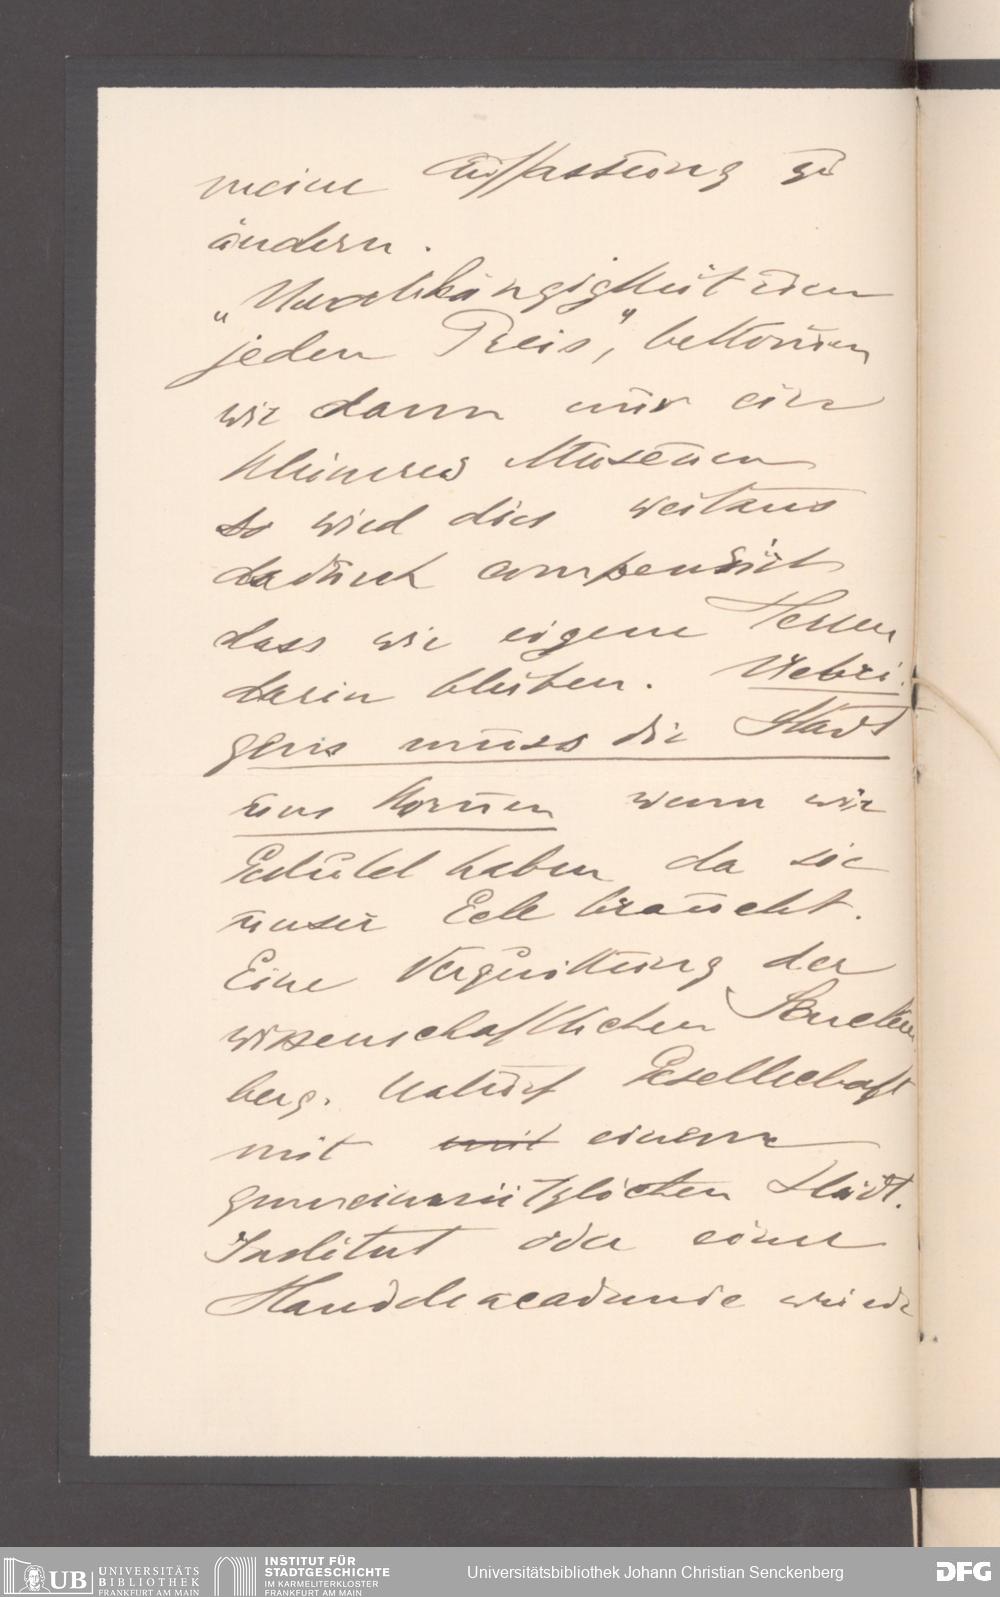 meine Auffassung zu
ändern.
„Unabhängigkeit um
jeden Preis", bekommen
wir dann nur ein
kleineres Museum
so wird dies weitaus
dadurch compensirt
dass wir eigene Herren
darin bleiben. Uebri-
gens muss die Stadt
uns kommen wenn wir
Geduld haben da sie
unser Eck braucht.
Eine Verquickung der
wissenschaftlichen Sencken
berg. Naturf Gesellschaft
mit mit einem
gemeinnützlichen städt.
Institut oder einer
Handelsacademie würde
UB UNIVERSITÄTS
BIBLIOTHEK
FRANKFURT AM MAIN
INSTITUT FÜR
STADTGESCHICHTE
IM KARMELITERKLOSTER
FRANKFURT AM MAIN
Universitätsbibliothek Johann Christian Senckenberg
DFG